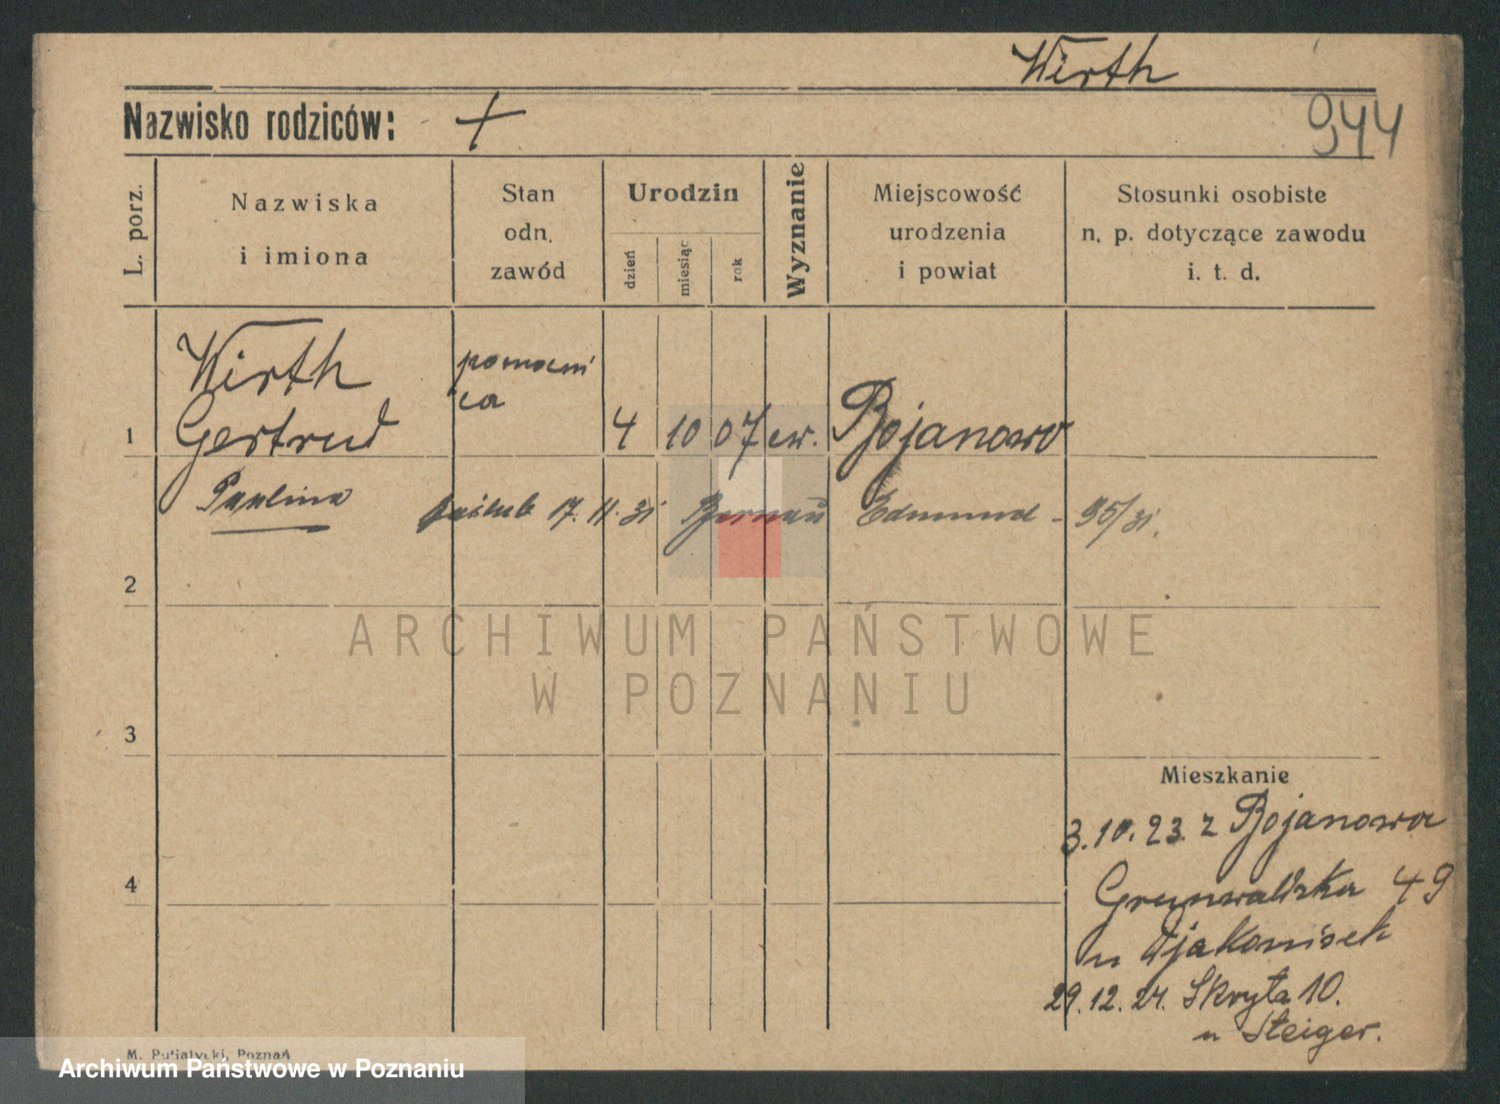 Wirth
Nazwisko rodziców: +
944
L. porz.
Nazwiska
i imiona
Stan
odn.
zawód
Urodzin
dzień
miesiąc
rok
Wyznanie
Miejscowość
urodzenia
i powiat
Stosunki osobiste
n. p. dotyczące zawodu
i. t. d.
Wirth pomocni
ca
1 Gertrud 4 10 07 ew. Bojanowo
Paulina 17. 11. 31 Bernau Edmund - 95/31.
2
ARCHIWUM PAŃSTWOWE
W POZNANIU
3
Mieszkanie
3.10.23. z Bojanowa
4
Grunwaldzka 49
u Djakonisek
29.12.24. Skryta 10.
u Steiger.
M. Putiatycki, Poznań
Archiwum Państwowe w Poznaniu